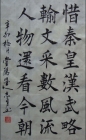 惜秦皇漢武略
輸文采數風流
人物還看今朝